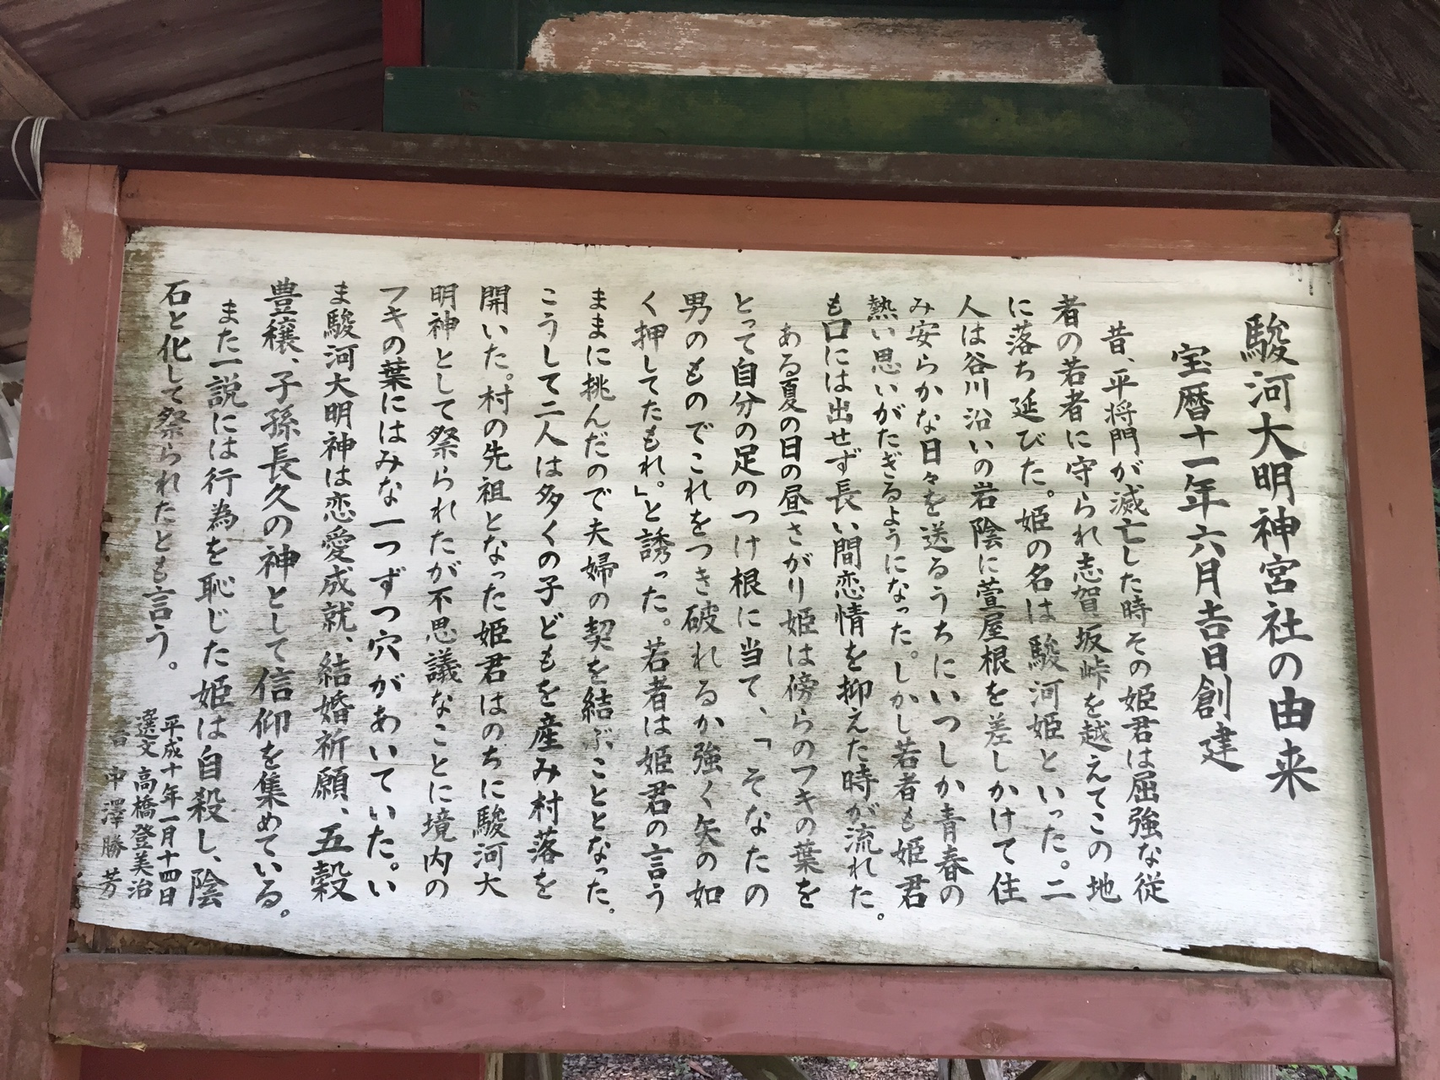 駿河大明神宮社の由来
宝暦十一年六月吉日創建
昔、平将門が滅亡した時その姫君は屈強な従
者の若者に守られ志賀坂峠を越えてこの地
に落ち延びた。姫の名は駿河姫といった。二
人は谷川沿いの岩陰に萱屋根を差しかけて住
み安らかな日々を送るうちにいつしか青春の
熱い思いがたぎるようになった。しかし若者も姫君
も口には出せず長い間恋情を抑えた時が流れた。
ある夏の日の昼さがり姫は傍らのフキの葉を
とって自分の足のつけ根に当て、「そなたの
男のものでこれをつき破れるか強く矢の如
く押してたもれ。」と誘った。若者は姫君の言う
ままに挑んだので夫婦の契を結ぶこととなった。
こうして二人は多くの子どもを産み村落を
開いた。村の先祖となった姫君はのちに駿河大
明神として祭られたが不思議なことに境内の
フキの葉にはみな一つずつ穴があいていた。い
ま駿河大明神は恋愛成就、結婚祈願、五穀
豊穣、子孫長久の神として信仰を集めている。
また一説には行為を恥じた姫は自殺し、陰
石と化して祭られたとも言う。
平成十年一月十四日
選文 高橋登美治
書 中澤勝芳